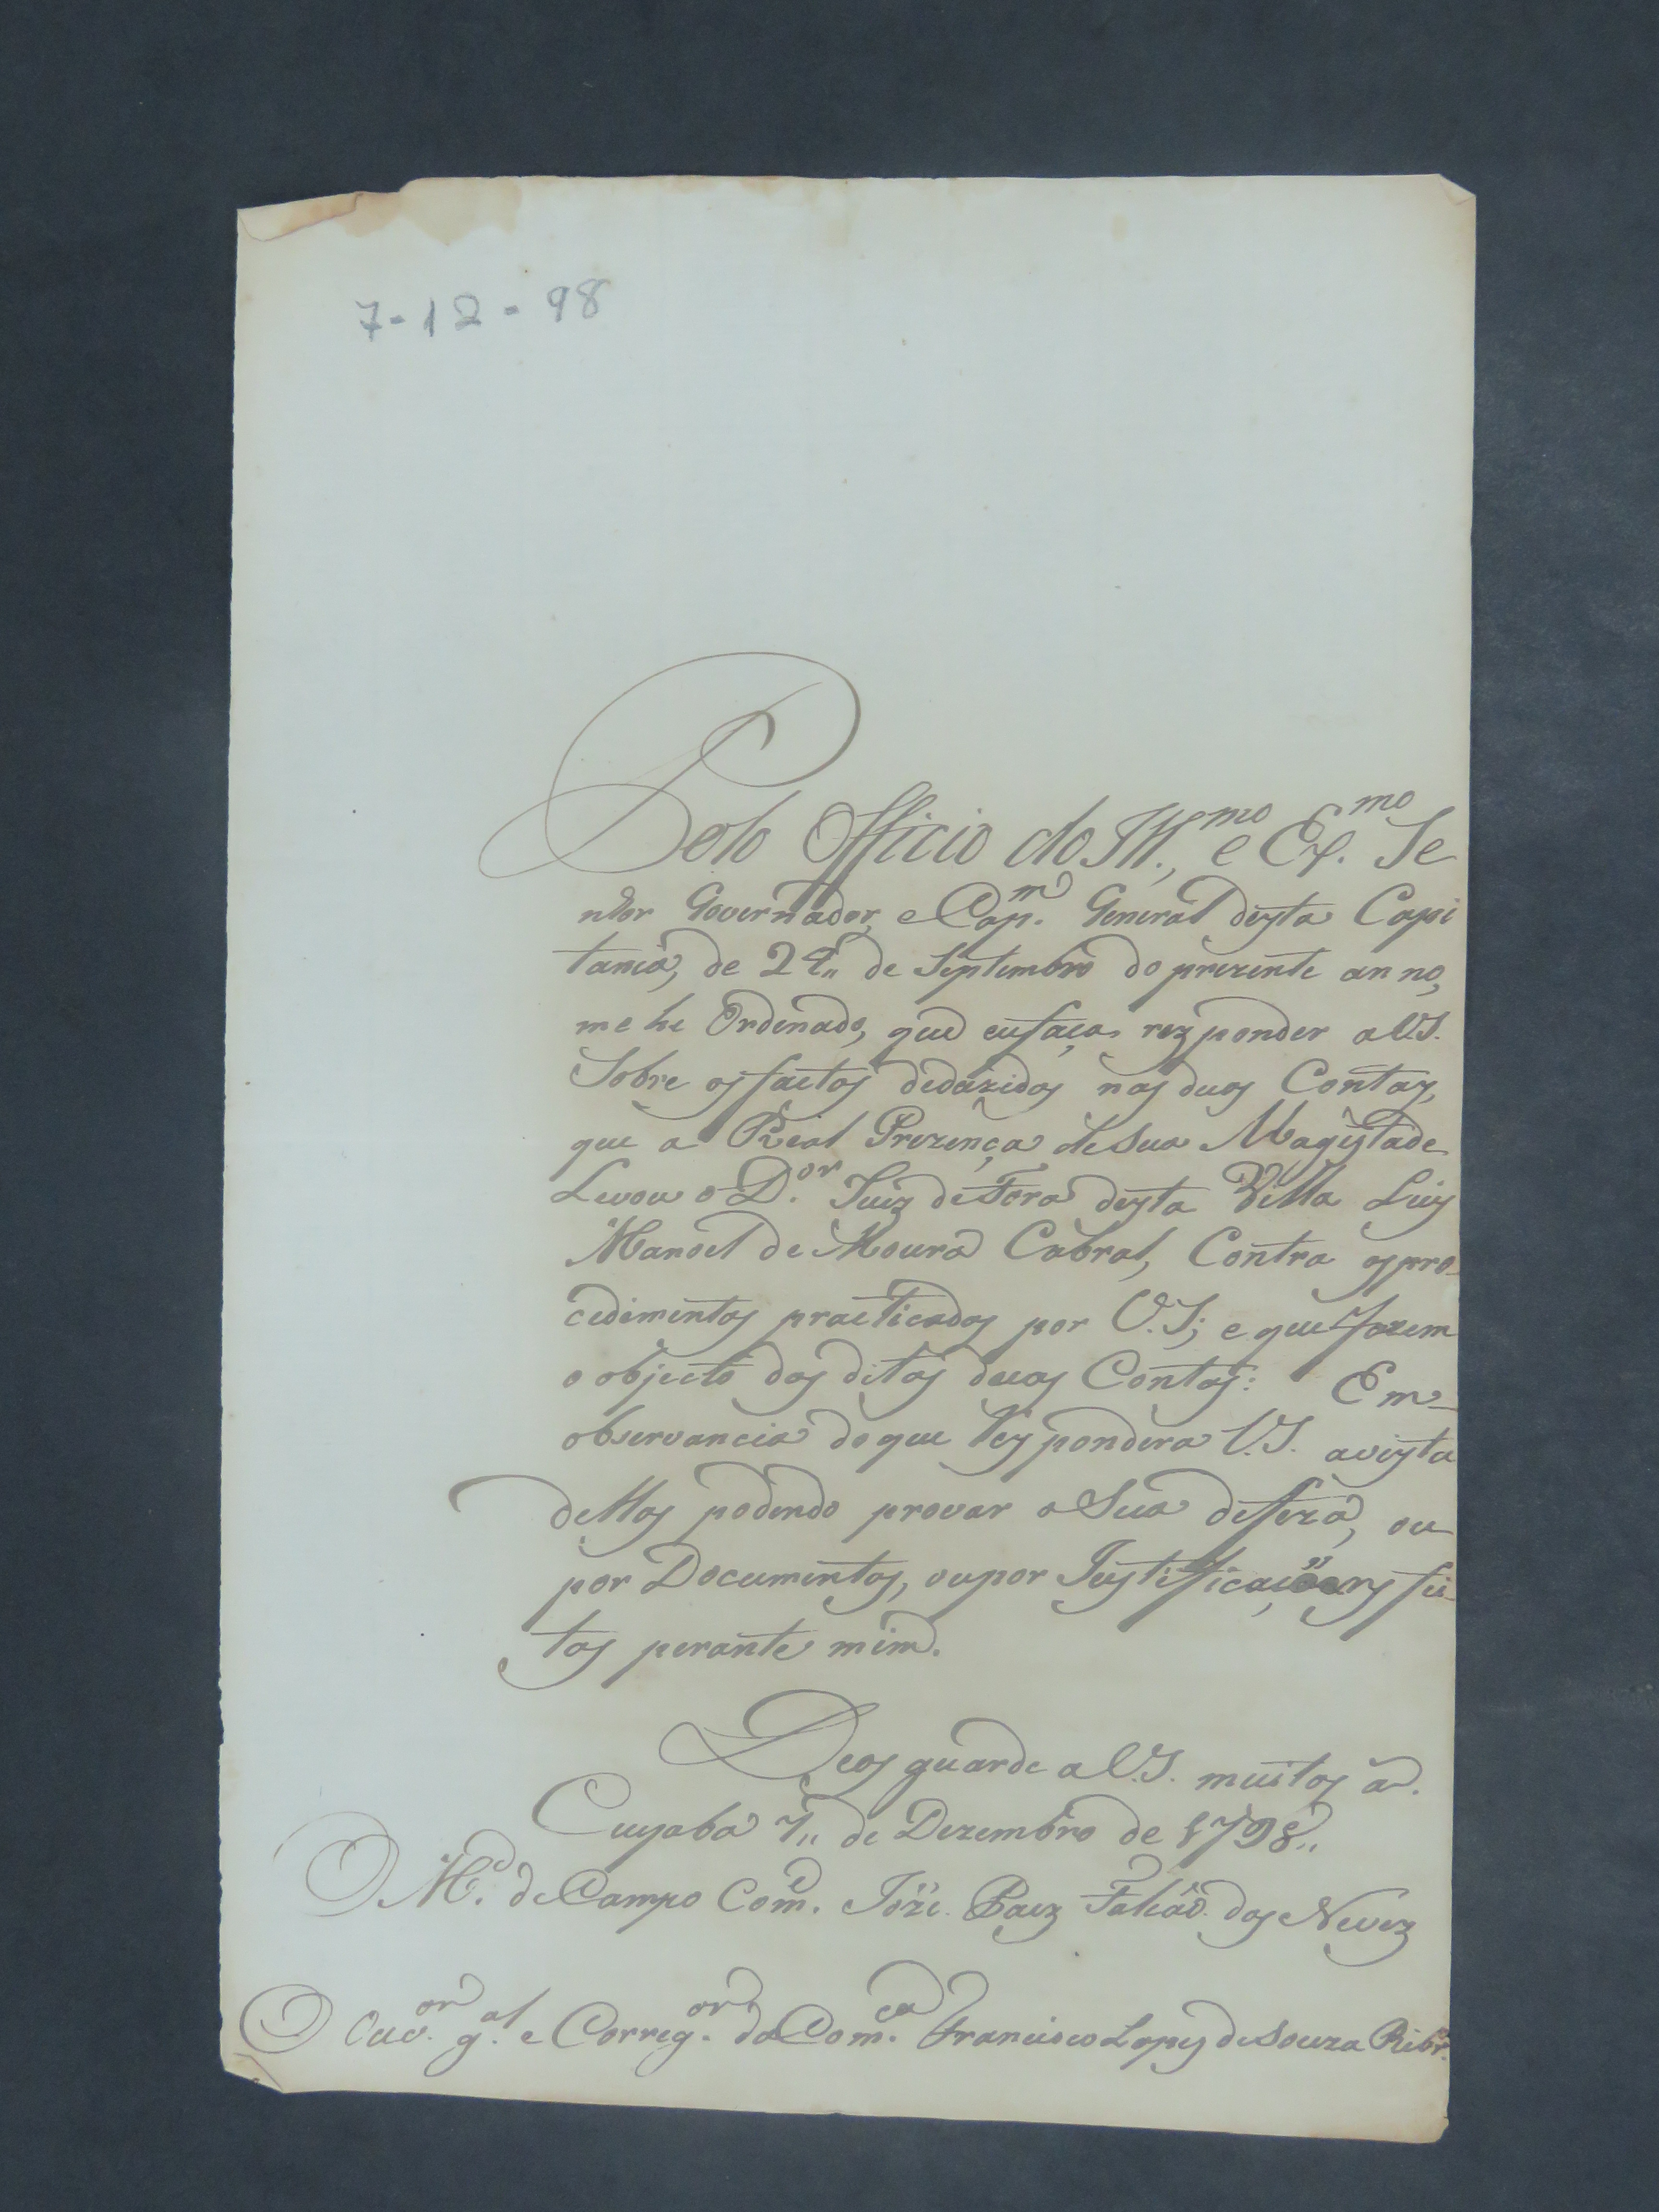 7-12-98
Pelo Officio do Ill.mo, e Ex.mo Se
nhor Governador, e Cap.m General desta Capi
tania, de 24,, de Septembro do prezente anno,
me he Ordenado, que eu faça responder a V.S.
Sobre os factos deduzidos nas duas Contas,
que a Real Prezença de Sua Magestade
Levou o D.or Juiz de Fora desta Villa Luis
Manoel de Moura Cabral, Contra os pro-
cedimentos practicados por V.S; e que fazem
o objecto das ditas duas Contas: Em
observancia do que Respondera V.S. a vista
dellas podendo provar a Sua defeza, ou
por Documentos, ou por Justificaçoens fei-
tas perante mim.
Deos guarde a V.S. muitos a.
Cuyabá 7,, de Dezembro de 1798,,
O M.e de Campo Com.e Joze Paes Falcão das Neves
O Ouv.or g.al e Correg.or da Com.ca Francisco Lopes de Souza Ribr.